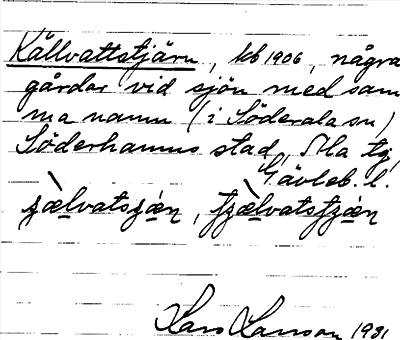 Källvattstjärn, kb 1906, några
gårdar vid sjön med sam
ma namn (i Söderala sn,)
Söderhamns stad, Ala tg,
Gävleb. l.
Lars Larsson 1931